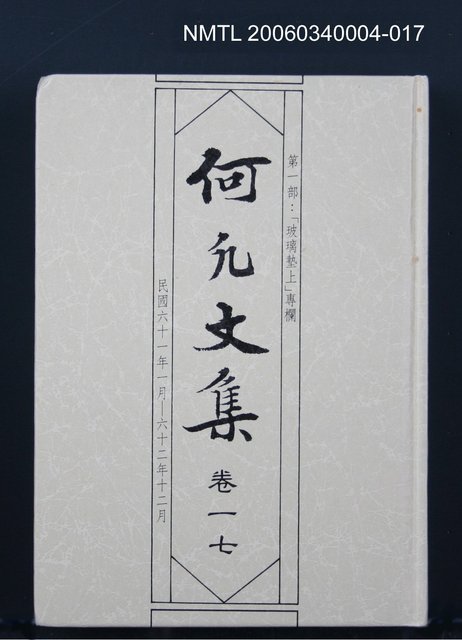 NMTL 20060340004-017
第一部：「玻璃墊上」專欄
何凡文集 卷一七
民國六十一年一月—六十二年十二月